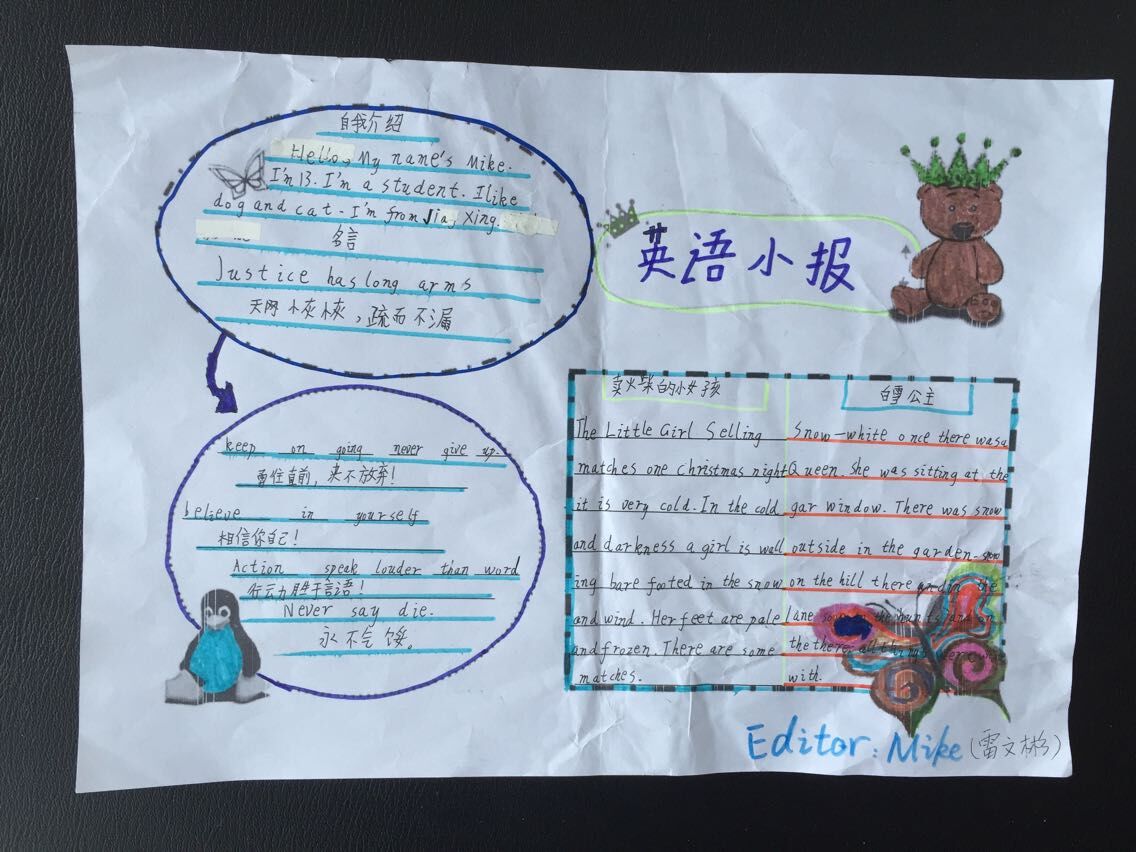 自我介绍
Hello, My name's Mike.
I'm 13. I'm a student. I like
dog and cat. I'm from Jia Xing.
名言
Justice has long arms
天网恢恢，疏而不漏
keep on going never give up.
勇往直前，来不放弃！
believe in yourself
相信你自己！
Action speak louder than word
行动力胜于言语！
Never say die.
永不气馁。
英语小报
卖火柴的小女孩
The Little Girl Selling
matches one christmas night
it is very cold. In the cold
and darkness a girl is wall
ing bare footed in the snow
and wind. Her feet are pale
and frozen. There are some
matches.
白雪公主
Snow-white once there was a
Queen she was sitting at the
gar window. There was snow
outside in the garden-snow
on the hill there and in the
lane the hunts and on
the there, all things were
with.
Editor: Mike (雷文彬)